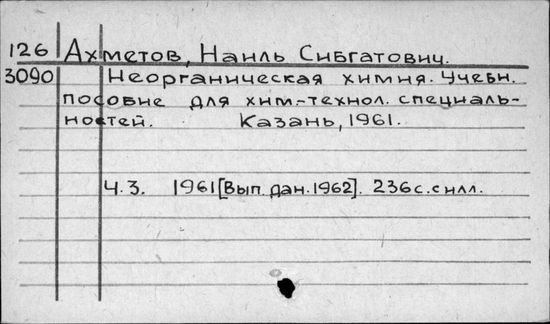 126 Ахметов, Наиль Сибгатович.
3090 Неорганическая химия. Учебн.
пособие для хим.-технол. специаль-
ностей. Казань, 1961.
Ч.3. 1961 [Вып. дан. 1962]. 236с. с илл.